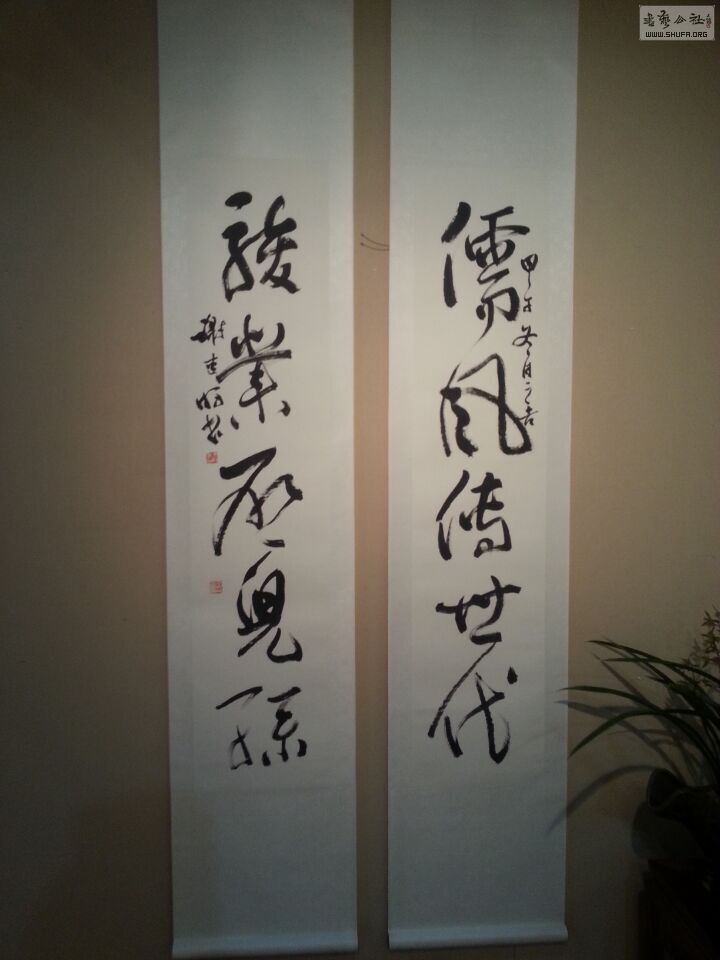 儒風傳世代
甲午冬月之吉
駿業啟兒孫
謝
書藝公社
WWW.SHUFA.ORG